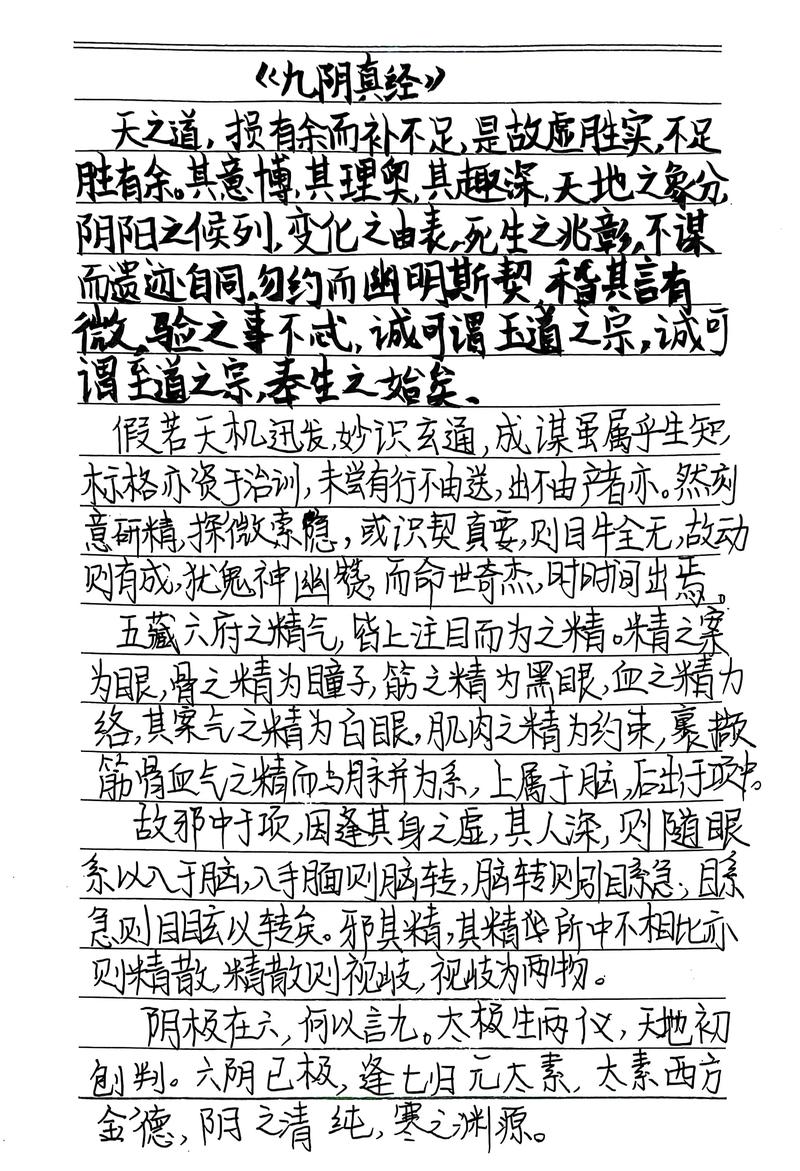 《九阴真经》
天之道,损有余而补不足,是故虚胜实,不足
胜有余。其意博,其理奥,其趣深,天地之象分,
阴阳之候列,变化之由表,死生之兆彰,不谋
而遗迹自同,勿约而幽明斯契,稽其言有
微,验之事不忒,诚可谓王道之宗,诚可
谓至道之宗,奉生之始矣、
假若天机迅发,妙识玄通,成谋虽属乎生知,
标格亦资于治训,未尝有行不由送,出不由产者亦。然刻
意研精,探微索隐,或识契真要,则目牛全无,故动
则有成,犹鬼神幽赞,而命世奇杰,时时间出焉。
五藏六府之精气,皆上注目而为之精。精之案
为眼,骨之精为瞳子,筋之精为黑眼,血之精力
络,其案气之精为白眼,肌肉之精为约束,裹撷
筋骨血气之精而与脉并为系,上属于脑,后出于项中。
故邪中于项,因逢其身之虚,其人深,则随眼
系以入于脑,入手脑则脑转,脑转则引目系急,目系
急则目眩以转矣。邪其精,其精所中不相比亦
则精散,精散则视歧,视歧为两物。
阴极在六,何以言九。太极生两仪,天地初
刨判。六阴已极,逢七归元太素,太素西方
金德,阴之清纯,寒之渊源。